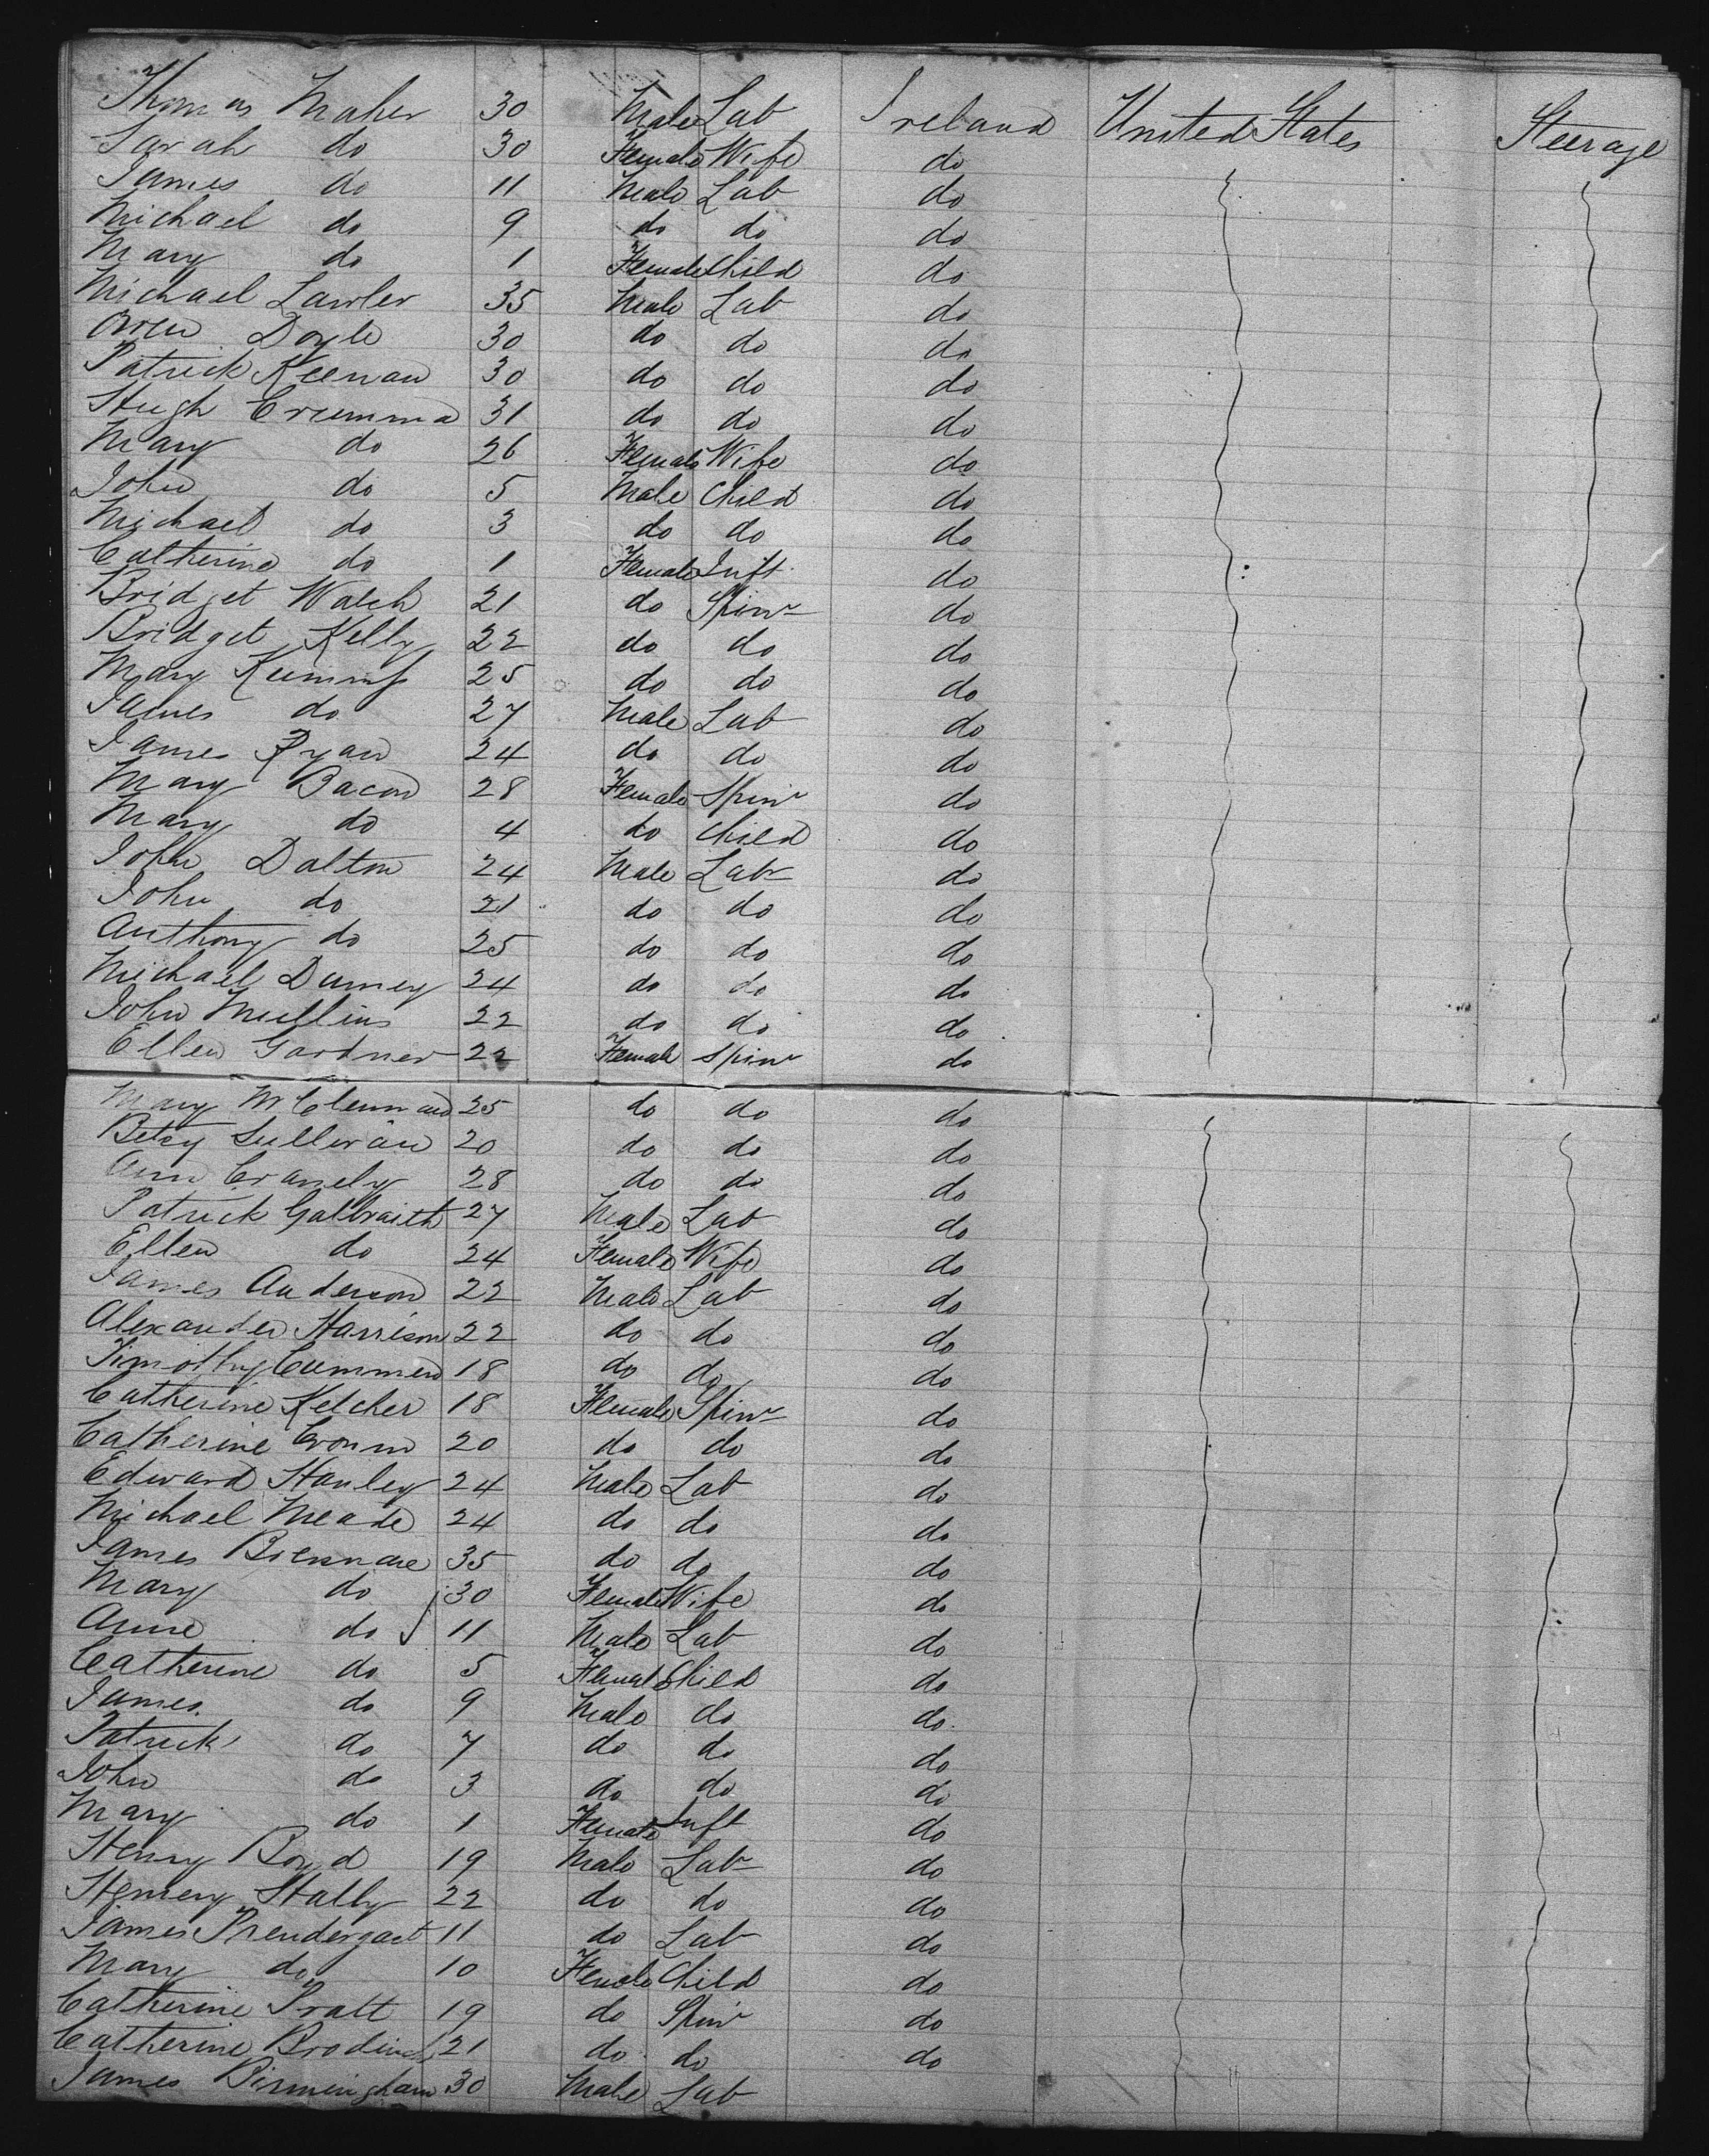 Thomas Maher 30 Male Lab Ireland United States Steerage
Sarah do 30 Female Wife do
James do 11 Male Lab do
Michael do 9 do do do
Mary do 1 Female Child do
Michael Lawler 35 Male Lab do
Owen Doyle 30 do do do
Patrick Keenan 30 do do do
Hugh 31 do do do
Mary do 26 Female Wife do
John do 5 Male Child do
Michael do 3 do do do
Catherine do 1 Female Inft do
Bridget Walch 21 do Spinr do
Bridget Kelly 22 do do do
Mary 25 do do do
James do 27 Male Lab do
James Ryan 24 do do do
Mary Bacon 28 Female Spinr do
Mary do 4 do Child do
John Dalton 24 Male Labr do
John do 21 do do do
Anthony do 25 do do do
Michael 24 do do do
John Mullins 22 do do do
Ellen Gardner 22 Female Spinr do
Mary 25 do do do
Betsy Sullivan 20 do do do
Ann 28 do do do
Patrick Galbraith 27 Male Lab do
Ellen do 24 Female Wife do
James Anderson 22 Male Lab do
Alexander Harrison 22 do do do
Timothy 18 do do do
Catherine Kelcher 18 Female Spinr do
Catherine 20 do do do
Edward Hanley 24 Male Lab do
Michael Meade 24 do do do
James 35 do do do
Mary do 30 Female Wife do
Anne do 11 Male Lab do
Catherine do 5 Female Child do
James do 9 Male do do
Patrick do 7 do do do
John do 3 do do do
Mary do 1 Female Inft do
Henry Boyd 19 Male Labr do
Henery Hally 22 do do do
James Prendergast 11 do Lab do
Mary do 10 Female Child do
Catherine Pratt 19 do Spinr do
Catherine 21 do do do
James Birmingham 30 Male Lab